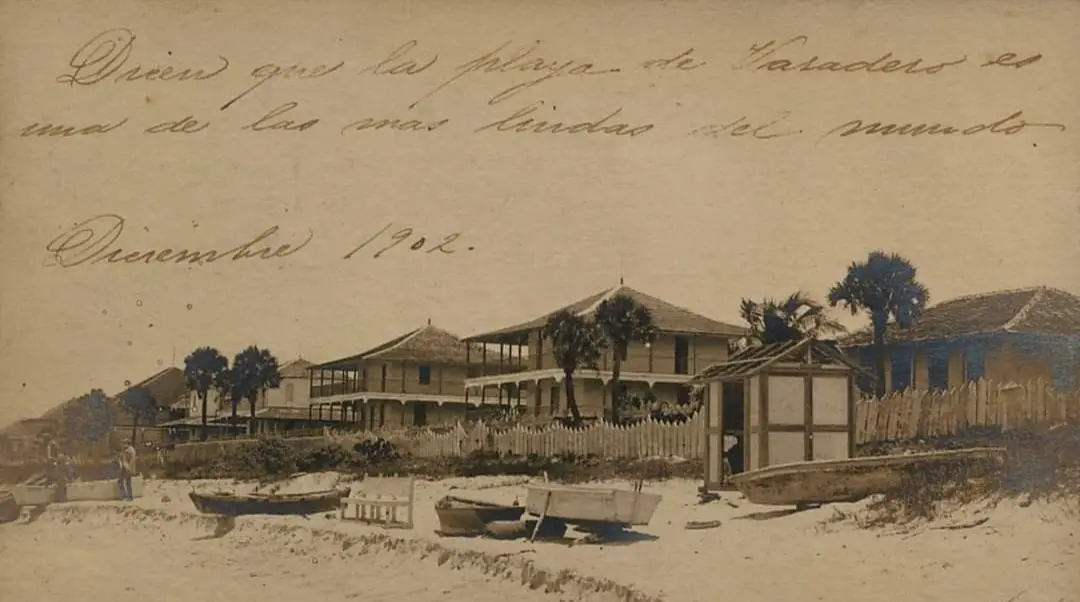 Dicen que la playa de Varadero es
una de las mas lindas del mundo
Diciembre 1902.